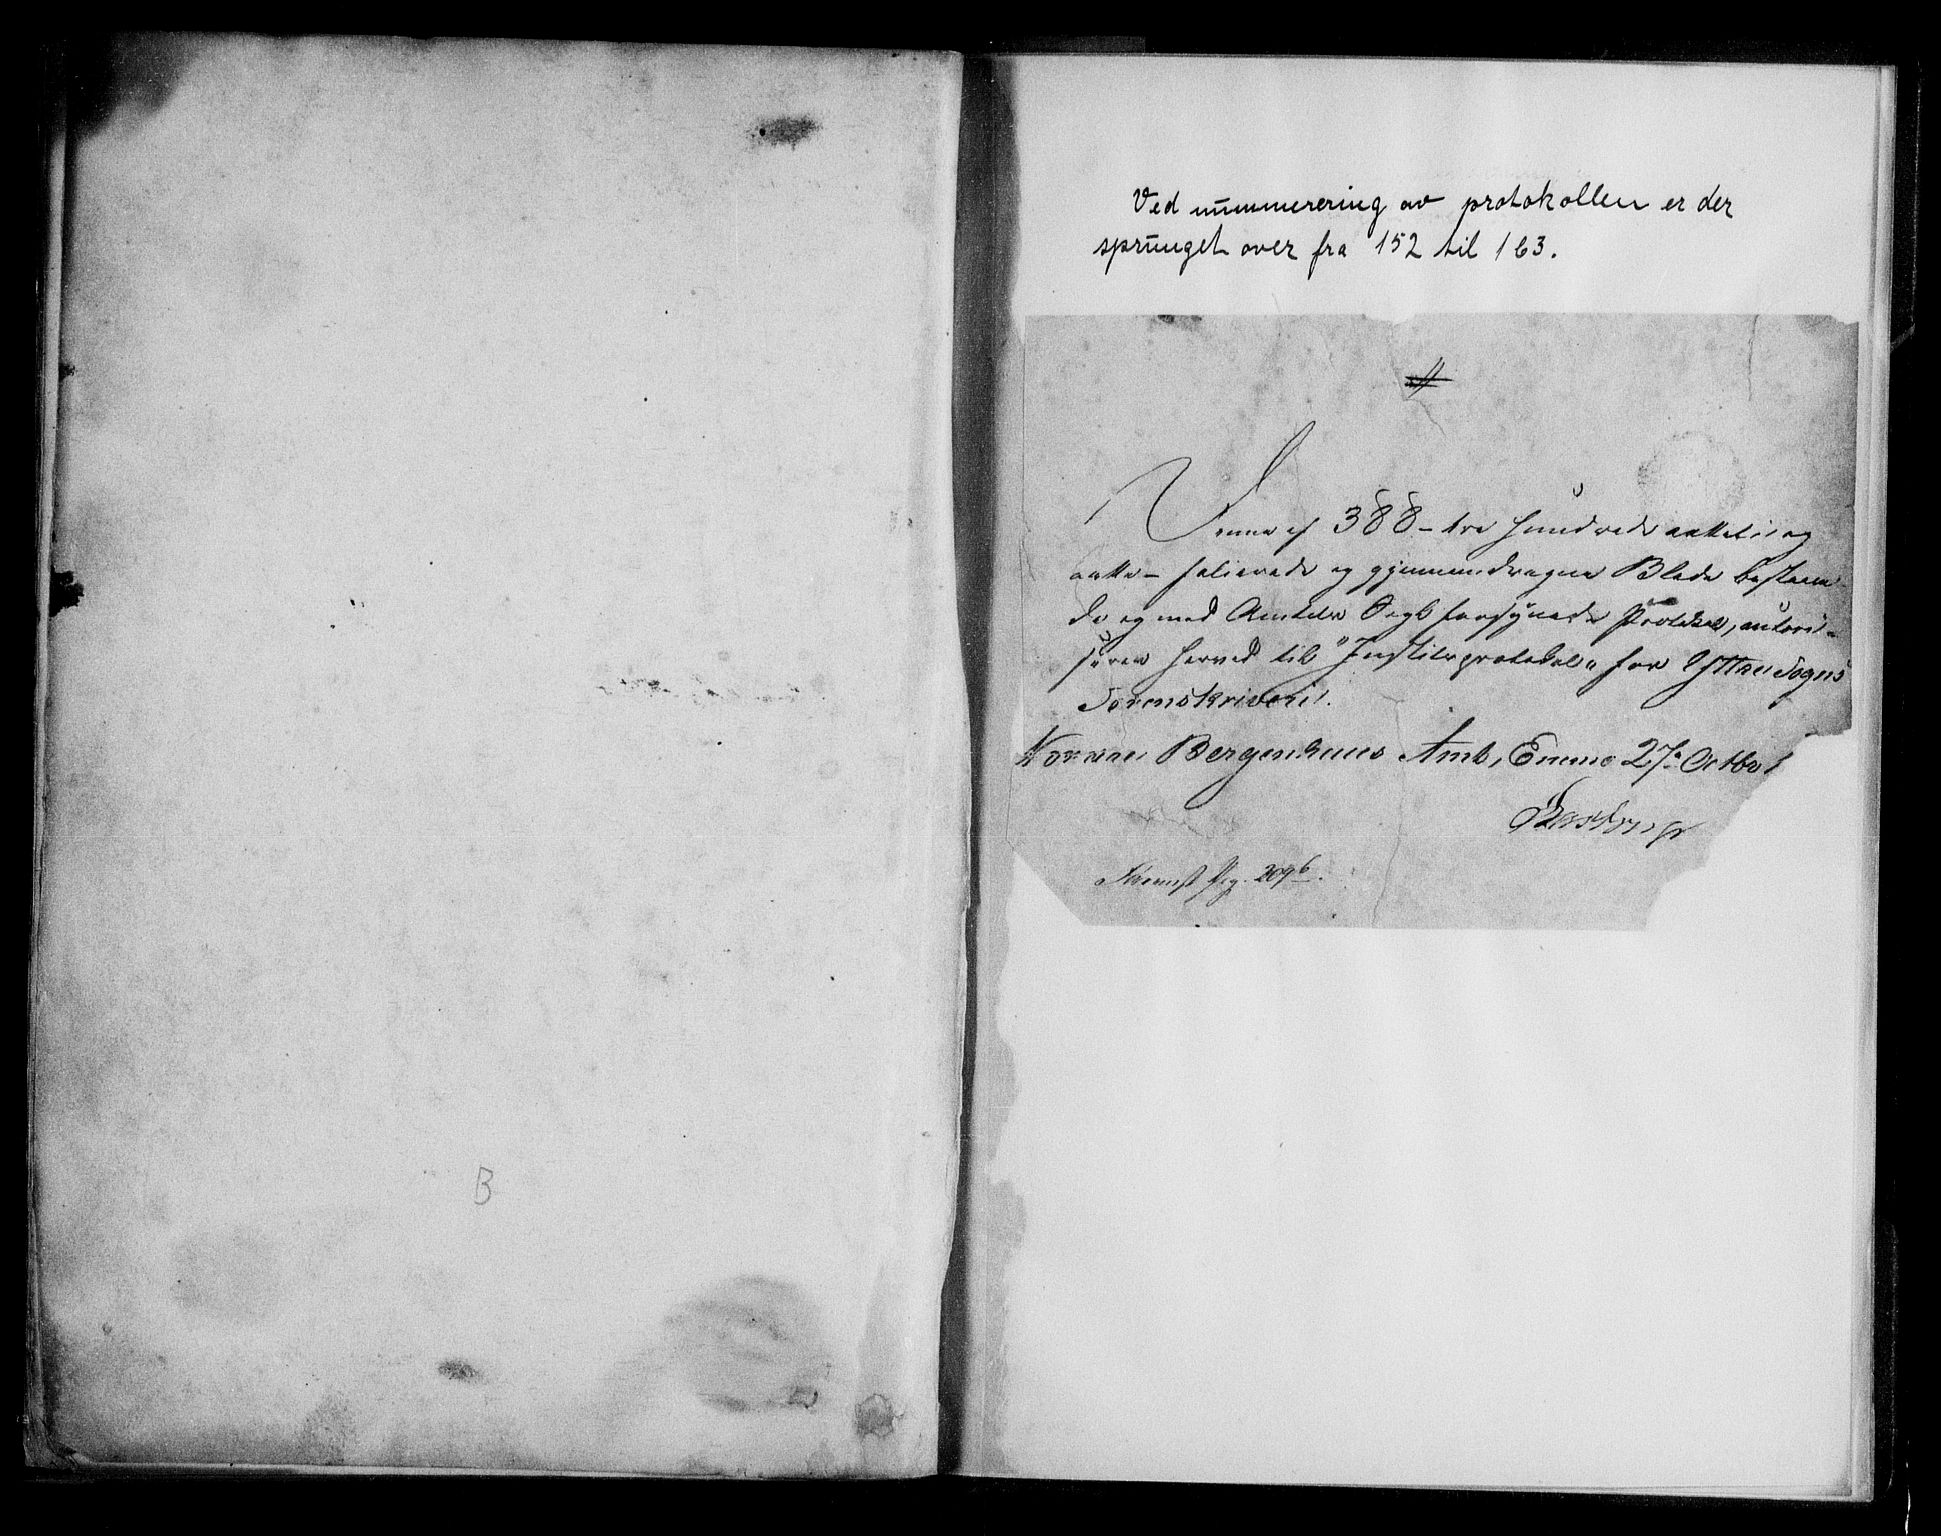 B
Ved nummerering av protokollen er der
sprunget over fra 152 til 163.
Denne af 388 – tre hundrede aatteti og
aatte – folierede og gjennemdragne Blade bestaaen-
de og med Amtets Segl forsynede Protokol, autori-
seres herved til "Justitsprotokol" for Yttre Sogns
Sorenskriveri.
Nordre Bergenhuus Amt, 27 Octbr
Skrevet Pag. 209b.